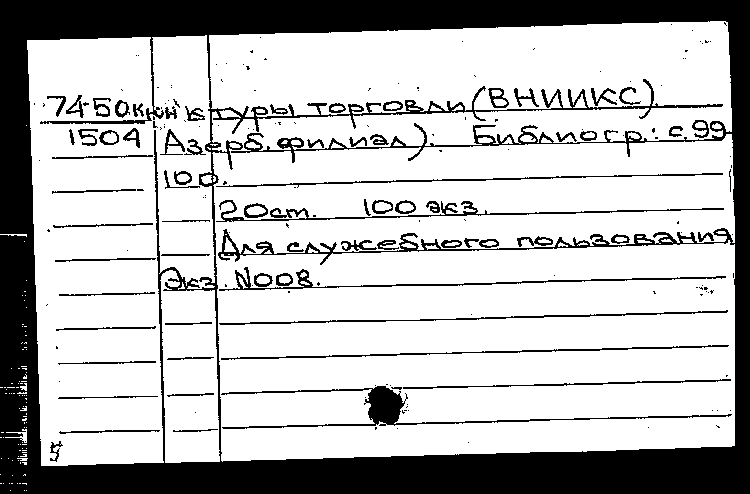 7450 конъюктуры торговли (ВНИИКС).
1504 Азерб. филиал). Библиогр.: с. 99
100.
20 см. 100 экз.
Для служебного пользования
Экз. N008.